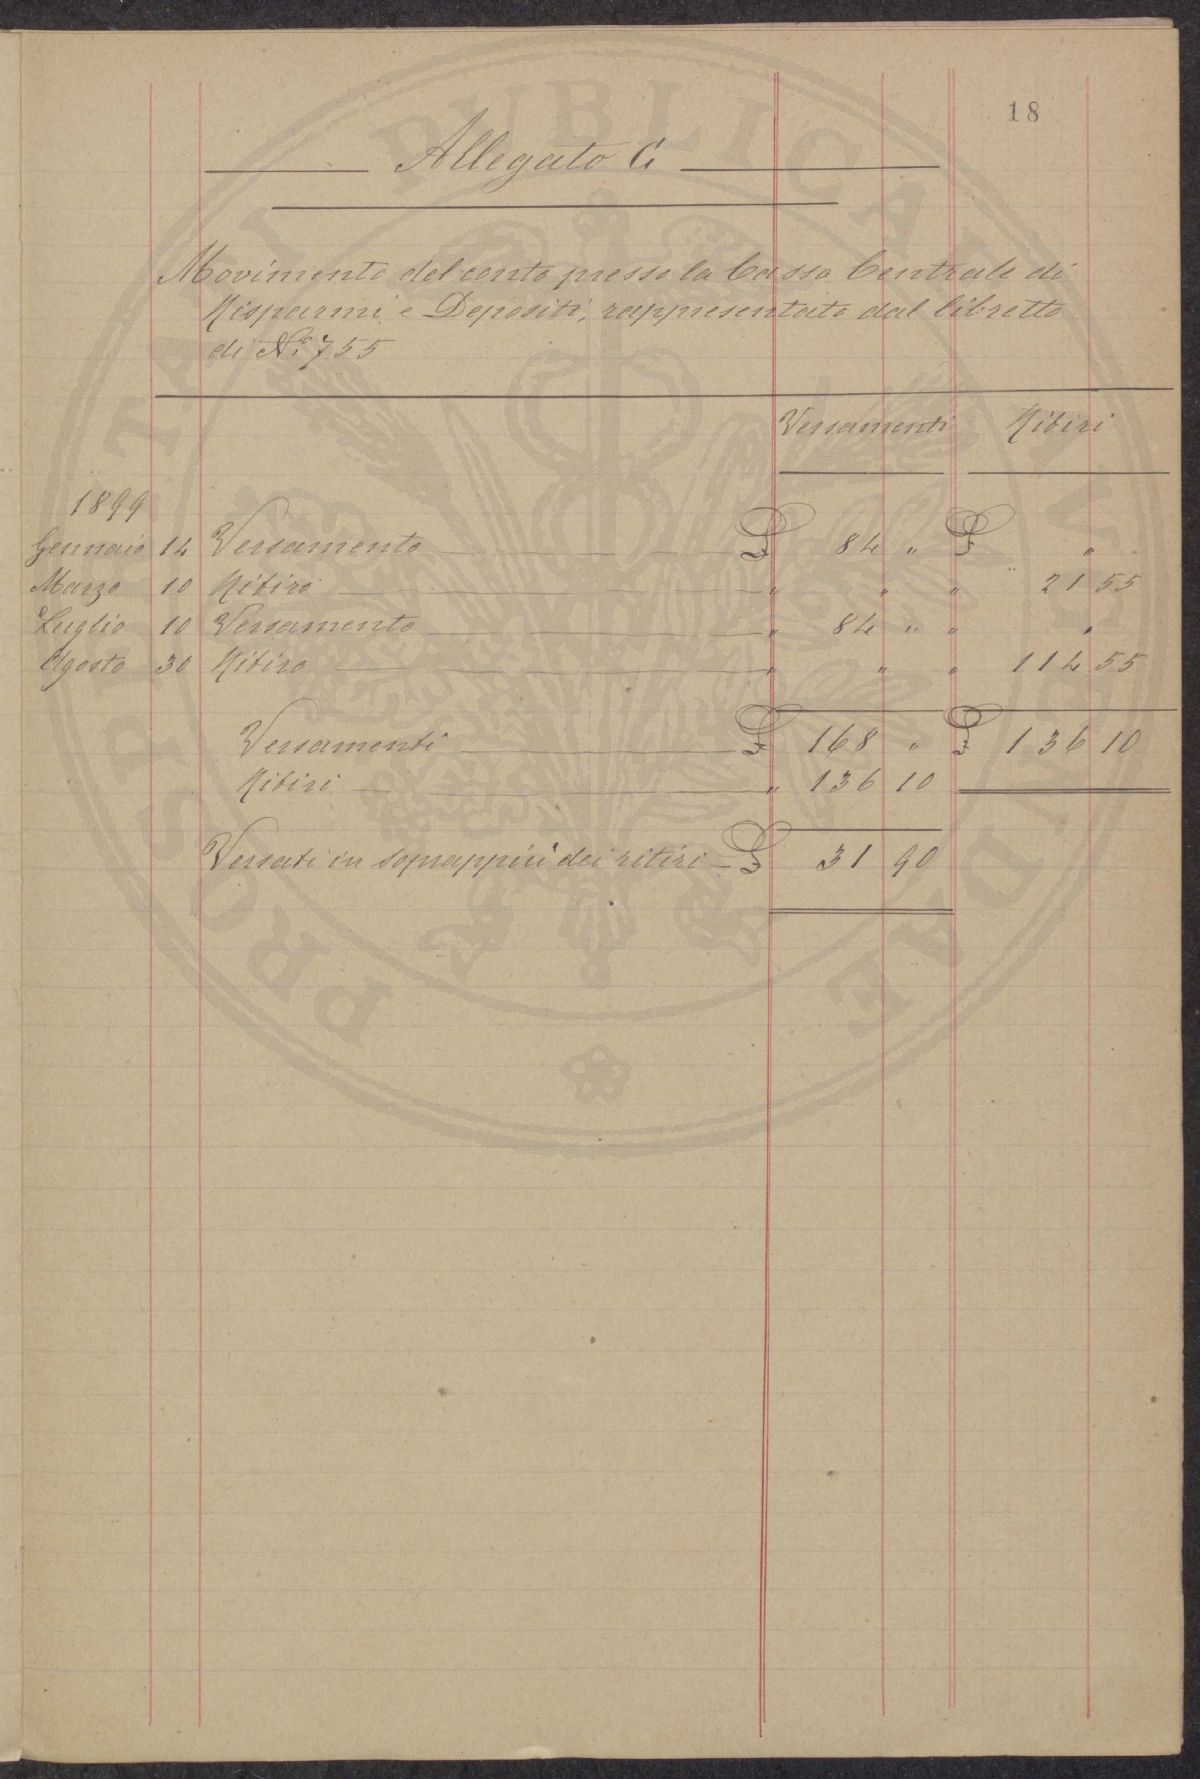 18
Allegato C
Movimento del conto presso la Cassa Centrale di
Risparmi e Depositi, rappresentato dal libretto
di No. 755
Versamenti Ritiri
1899
Gennaio 14 Versamento £ 84 " £ "
Marzo 10 Ritiro " " " 21 55
Luglio 10 Versamento " 84 " " "
Agosto 30 Ritiro " " " 114 55
Versamenti £ 168 " £ 136 10
Ritiri " 136 10
Versati in soprappiù dei ritiri £ 31 90
PROSPERITATI PUBLICAE AUGENDAE